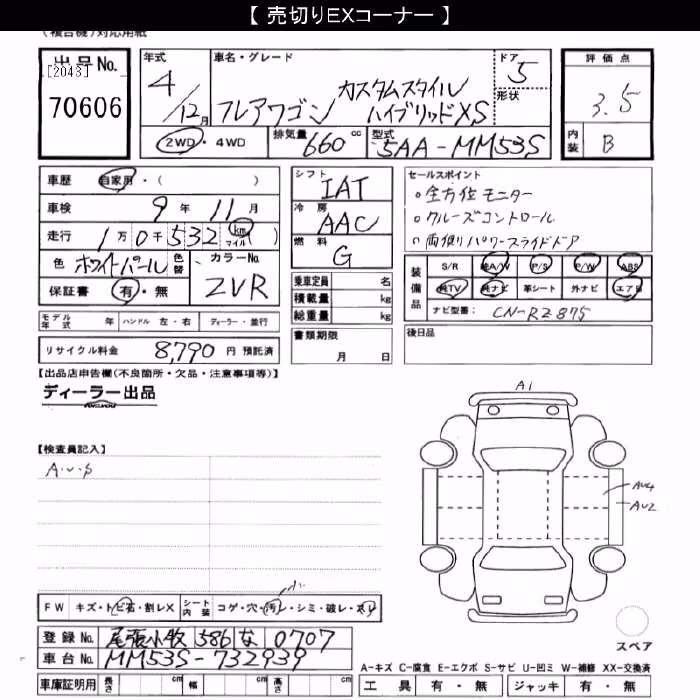 【 売切りEXコーナー 】
(複合機)対応用紙
出品No. [2043] 70606
年式 4/12月
車名・グレード フレアワゴン カスタムスタイル ハイブリッドXS
ドア 5 形状
評価点 3.5
内装 B
2WD・4WD 排気量 660 cc 型式 5AA-MM53S
車歴 自家用・( )
車検 9年 11月
走行 1万0千532 km マイル ( )
色 ホワイトパール 色替 カラーNo. ZVR
保証書 有・無
シフト IAT
冷房 AAC
燃料 G
乗車定員 名
積載量 kg
総重量 kg
セールスポイント
○全方位モニター
○クルーズコントロール
○両側パワースライドドア
装備品 S/R 純A/W P/S P/W ABS
純TV 純ナビ 革シート 外ナビ エアB
ナビ型番: CN-RZ875
モデル年式 年 ハンドル 左・右 ディーラー・並行
書類期限 月 日
後日品
リサイクル料金 8,790 円 預託済
【出品店申告欄(不良箇所・欠品・注意事項等)】
ディーラー出品
A1
【検査員記入】
A・U・S
AU4
AU2
FW キズ・トビ石・割レX シート内装 コゲ・穴・汚レ・シミ・破レ・スレ
小
スペア
登録No. 尾張小牧 586 な 0707
車台No. MM53S-732939
A－キズ C－腐食 E－エクボ S－サビ U－凹ミ W－補修 XX－交換済
車庫証明用 長さ cm 幅 cm 高さ cm
工具 有・無 ジャッキ 有・無